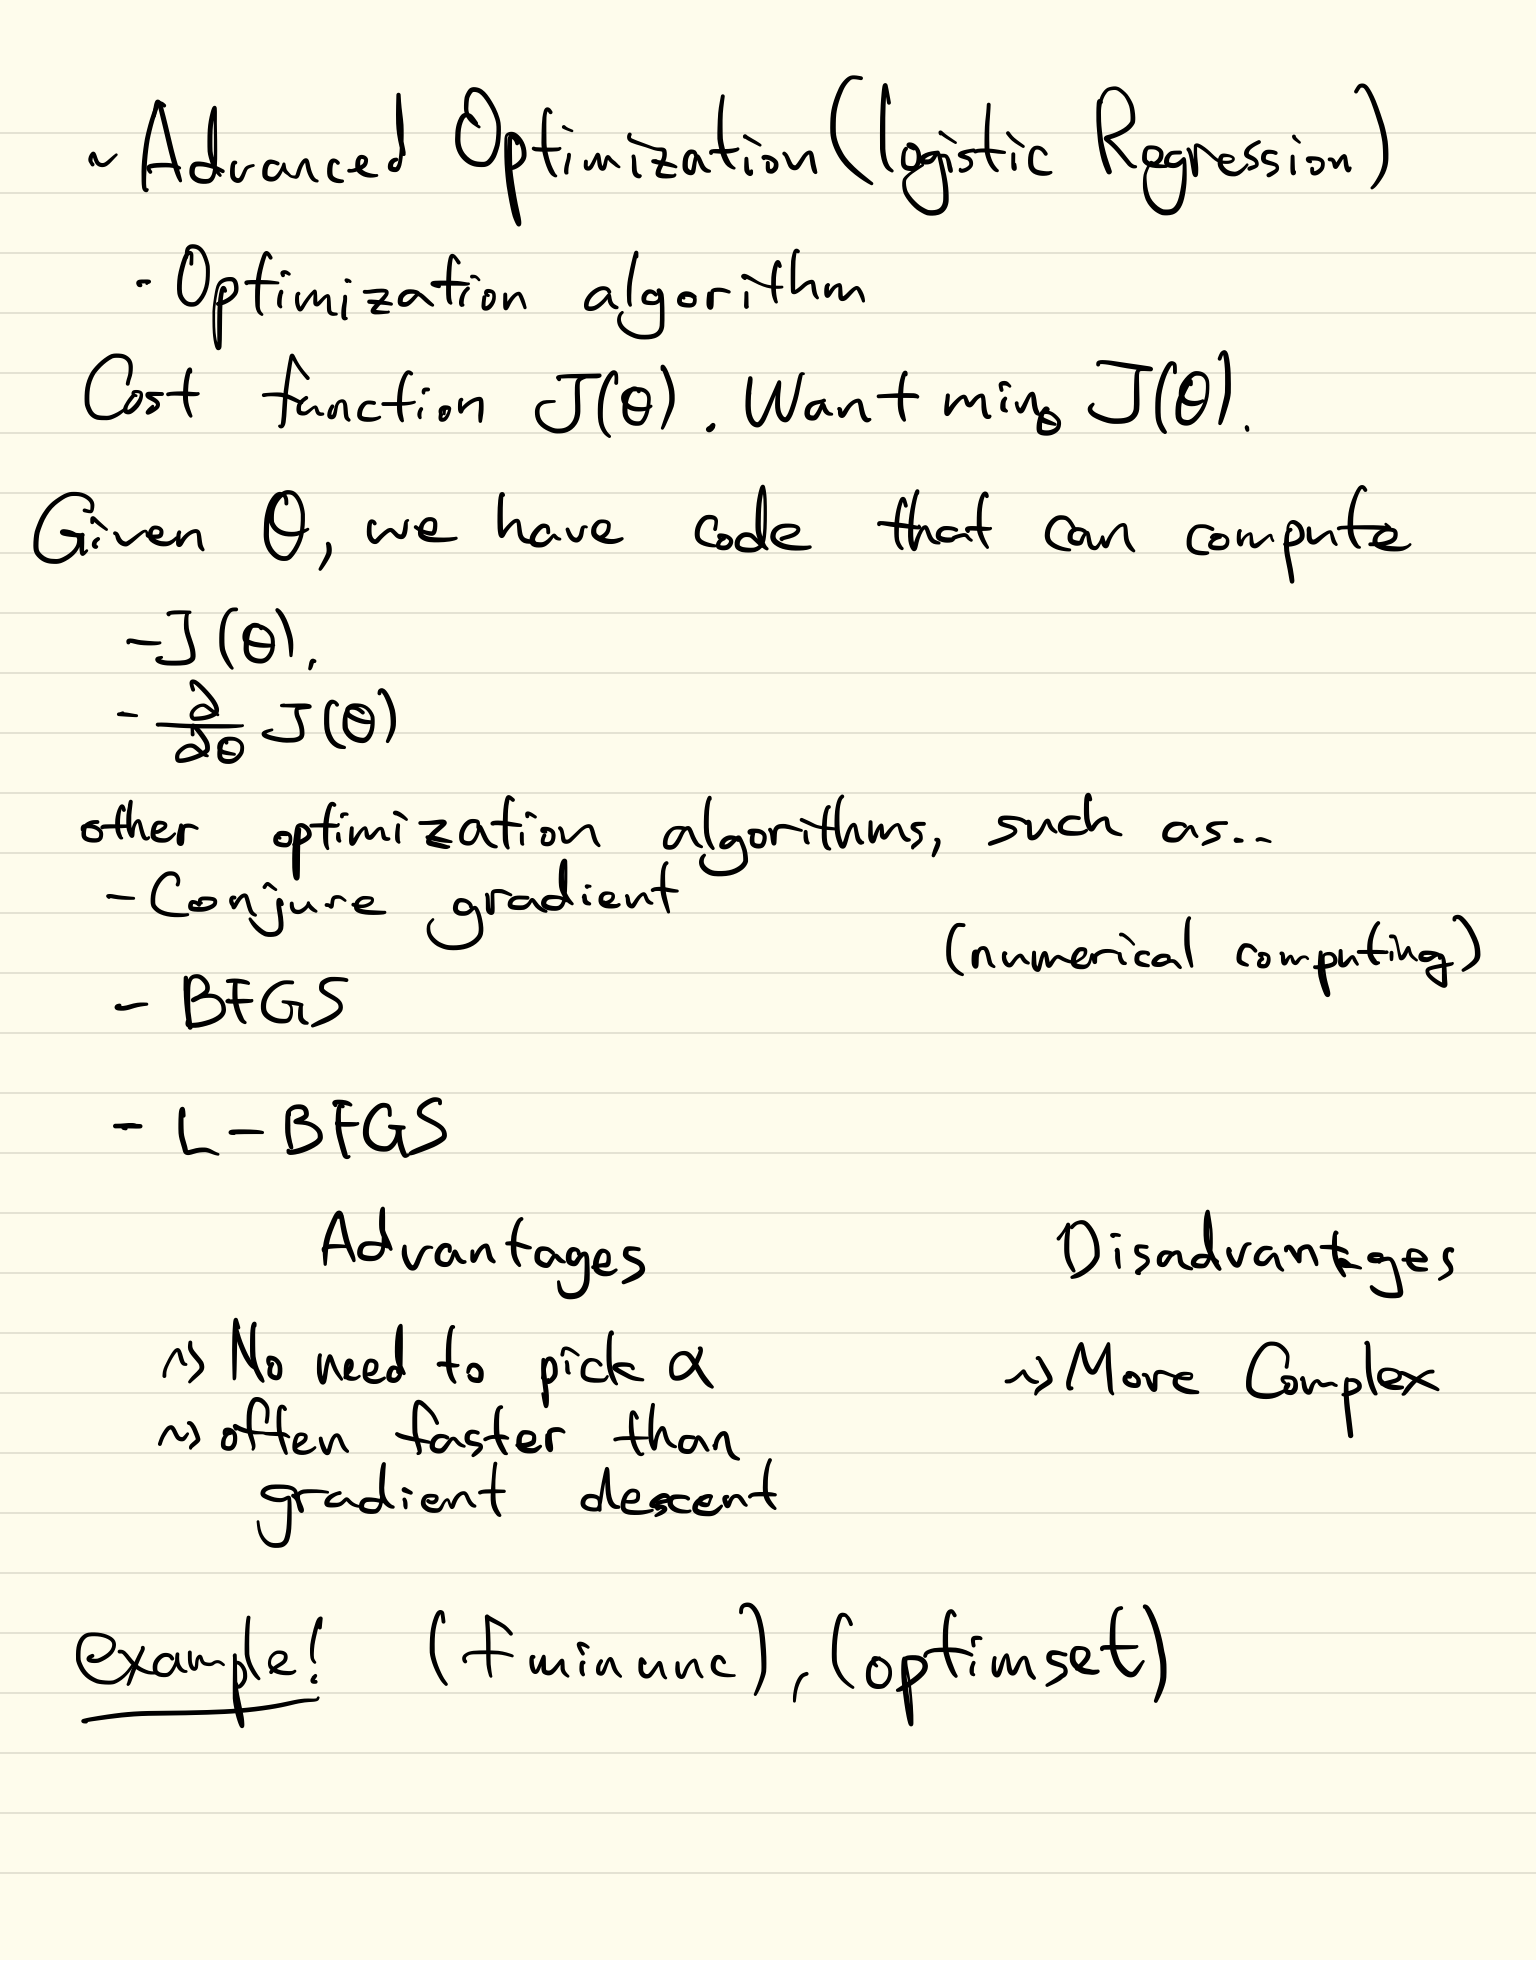 ~ Advanced Optimization (logistic Regression)
- Optimization algorithm
Cost function J(θ). Want minθ J(θ).
Given θ, we have code that can compute
- J(θ).
- ∂/∂θ J(θ)
other optimization algorithms, such as..
- Conjure gradient
(numerical computing)
- BFGS
- L-BFGS
Advantages Disadvantages
~> No need to pick α ~> More Complex
~> often faster than
gradient descent
example! (fminunc), (optimset)